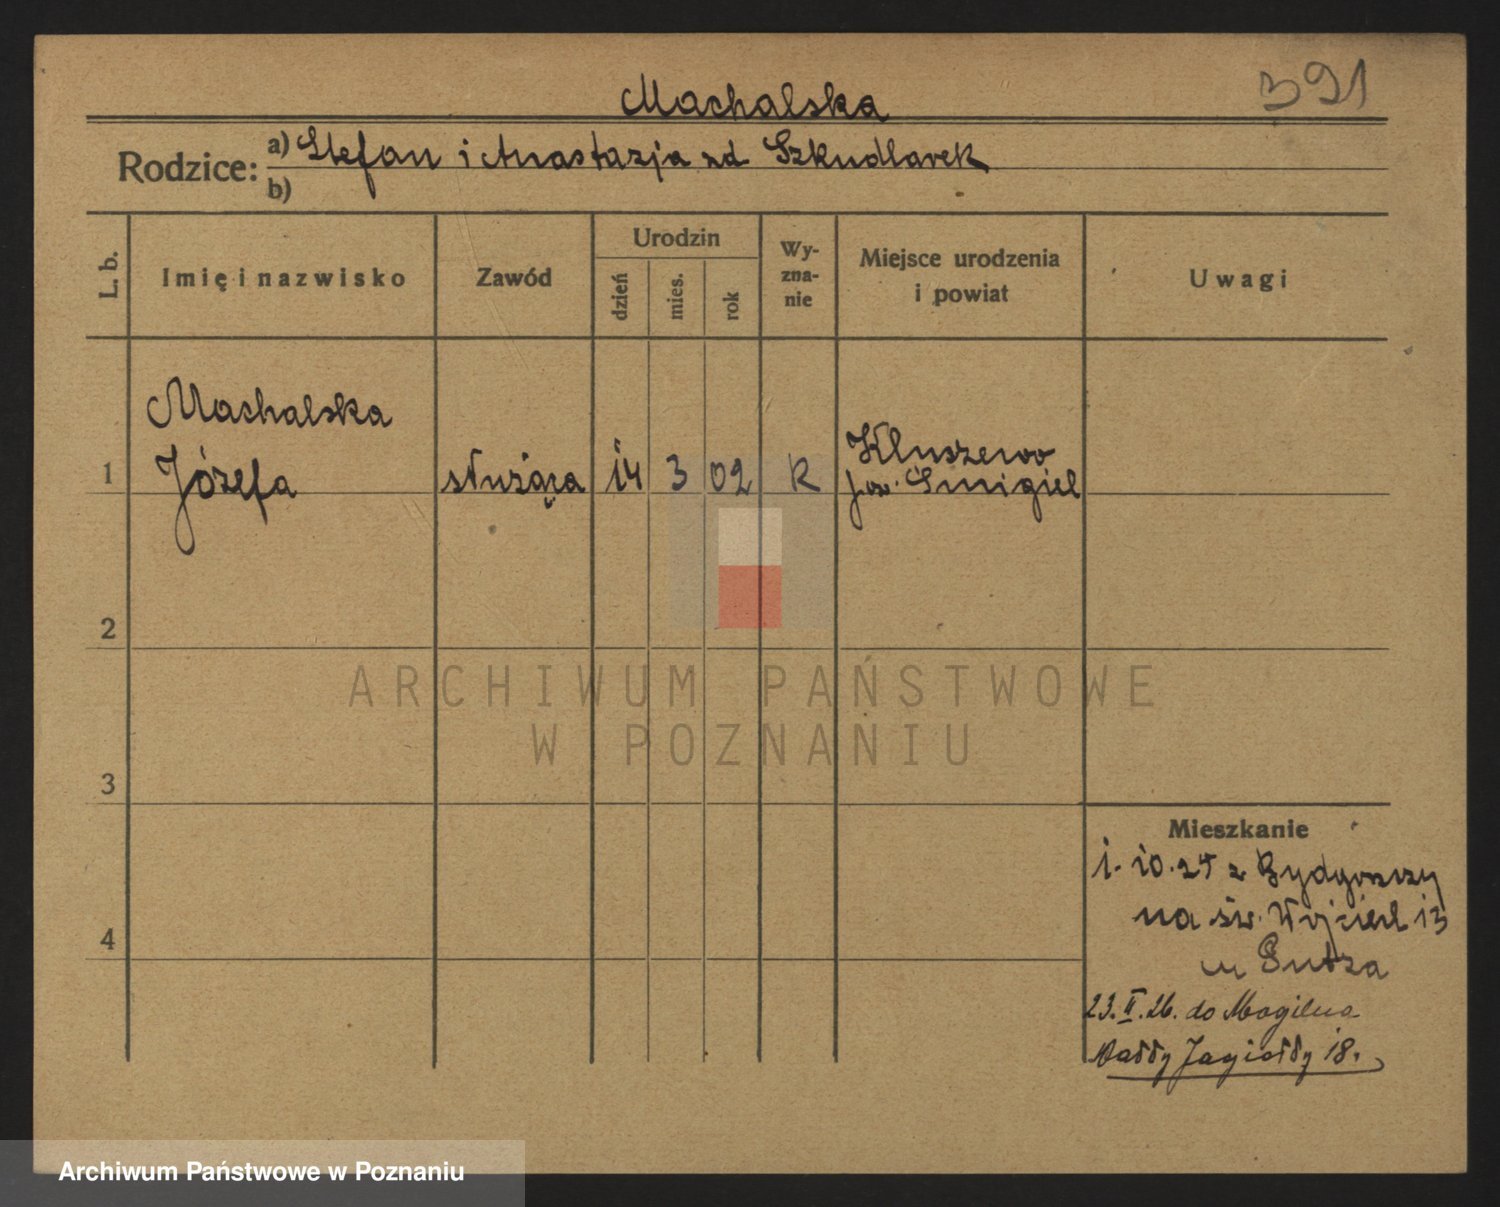 391
Machalska
Rodzice: a) Stefan i Anastazja zd Szkudlarek
b)
L. b.
Imię i nazwisko
Zawód
Urodzin
dzień
mies.
rok
Wy-
zna-
nie
Miejsce urodzenia
i powiat
Uwagi
Machalska
1 Józefa służąca 14 3 02 k Kluszewo
pow. Śmigiel
2
3
4
Mieszkanie
1. 10. 24 z Bydgoszczy
na św. Wojciech 13
u
23. II. 26. do Mogilna
Jagiełły 18.
ARCHIWUM PAŃSTWOWE
W POZNANIU
Archiwum Państwowe w Poznaniu